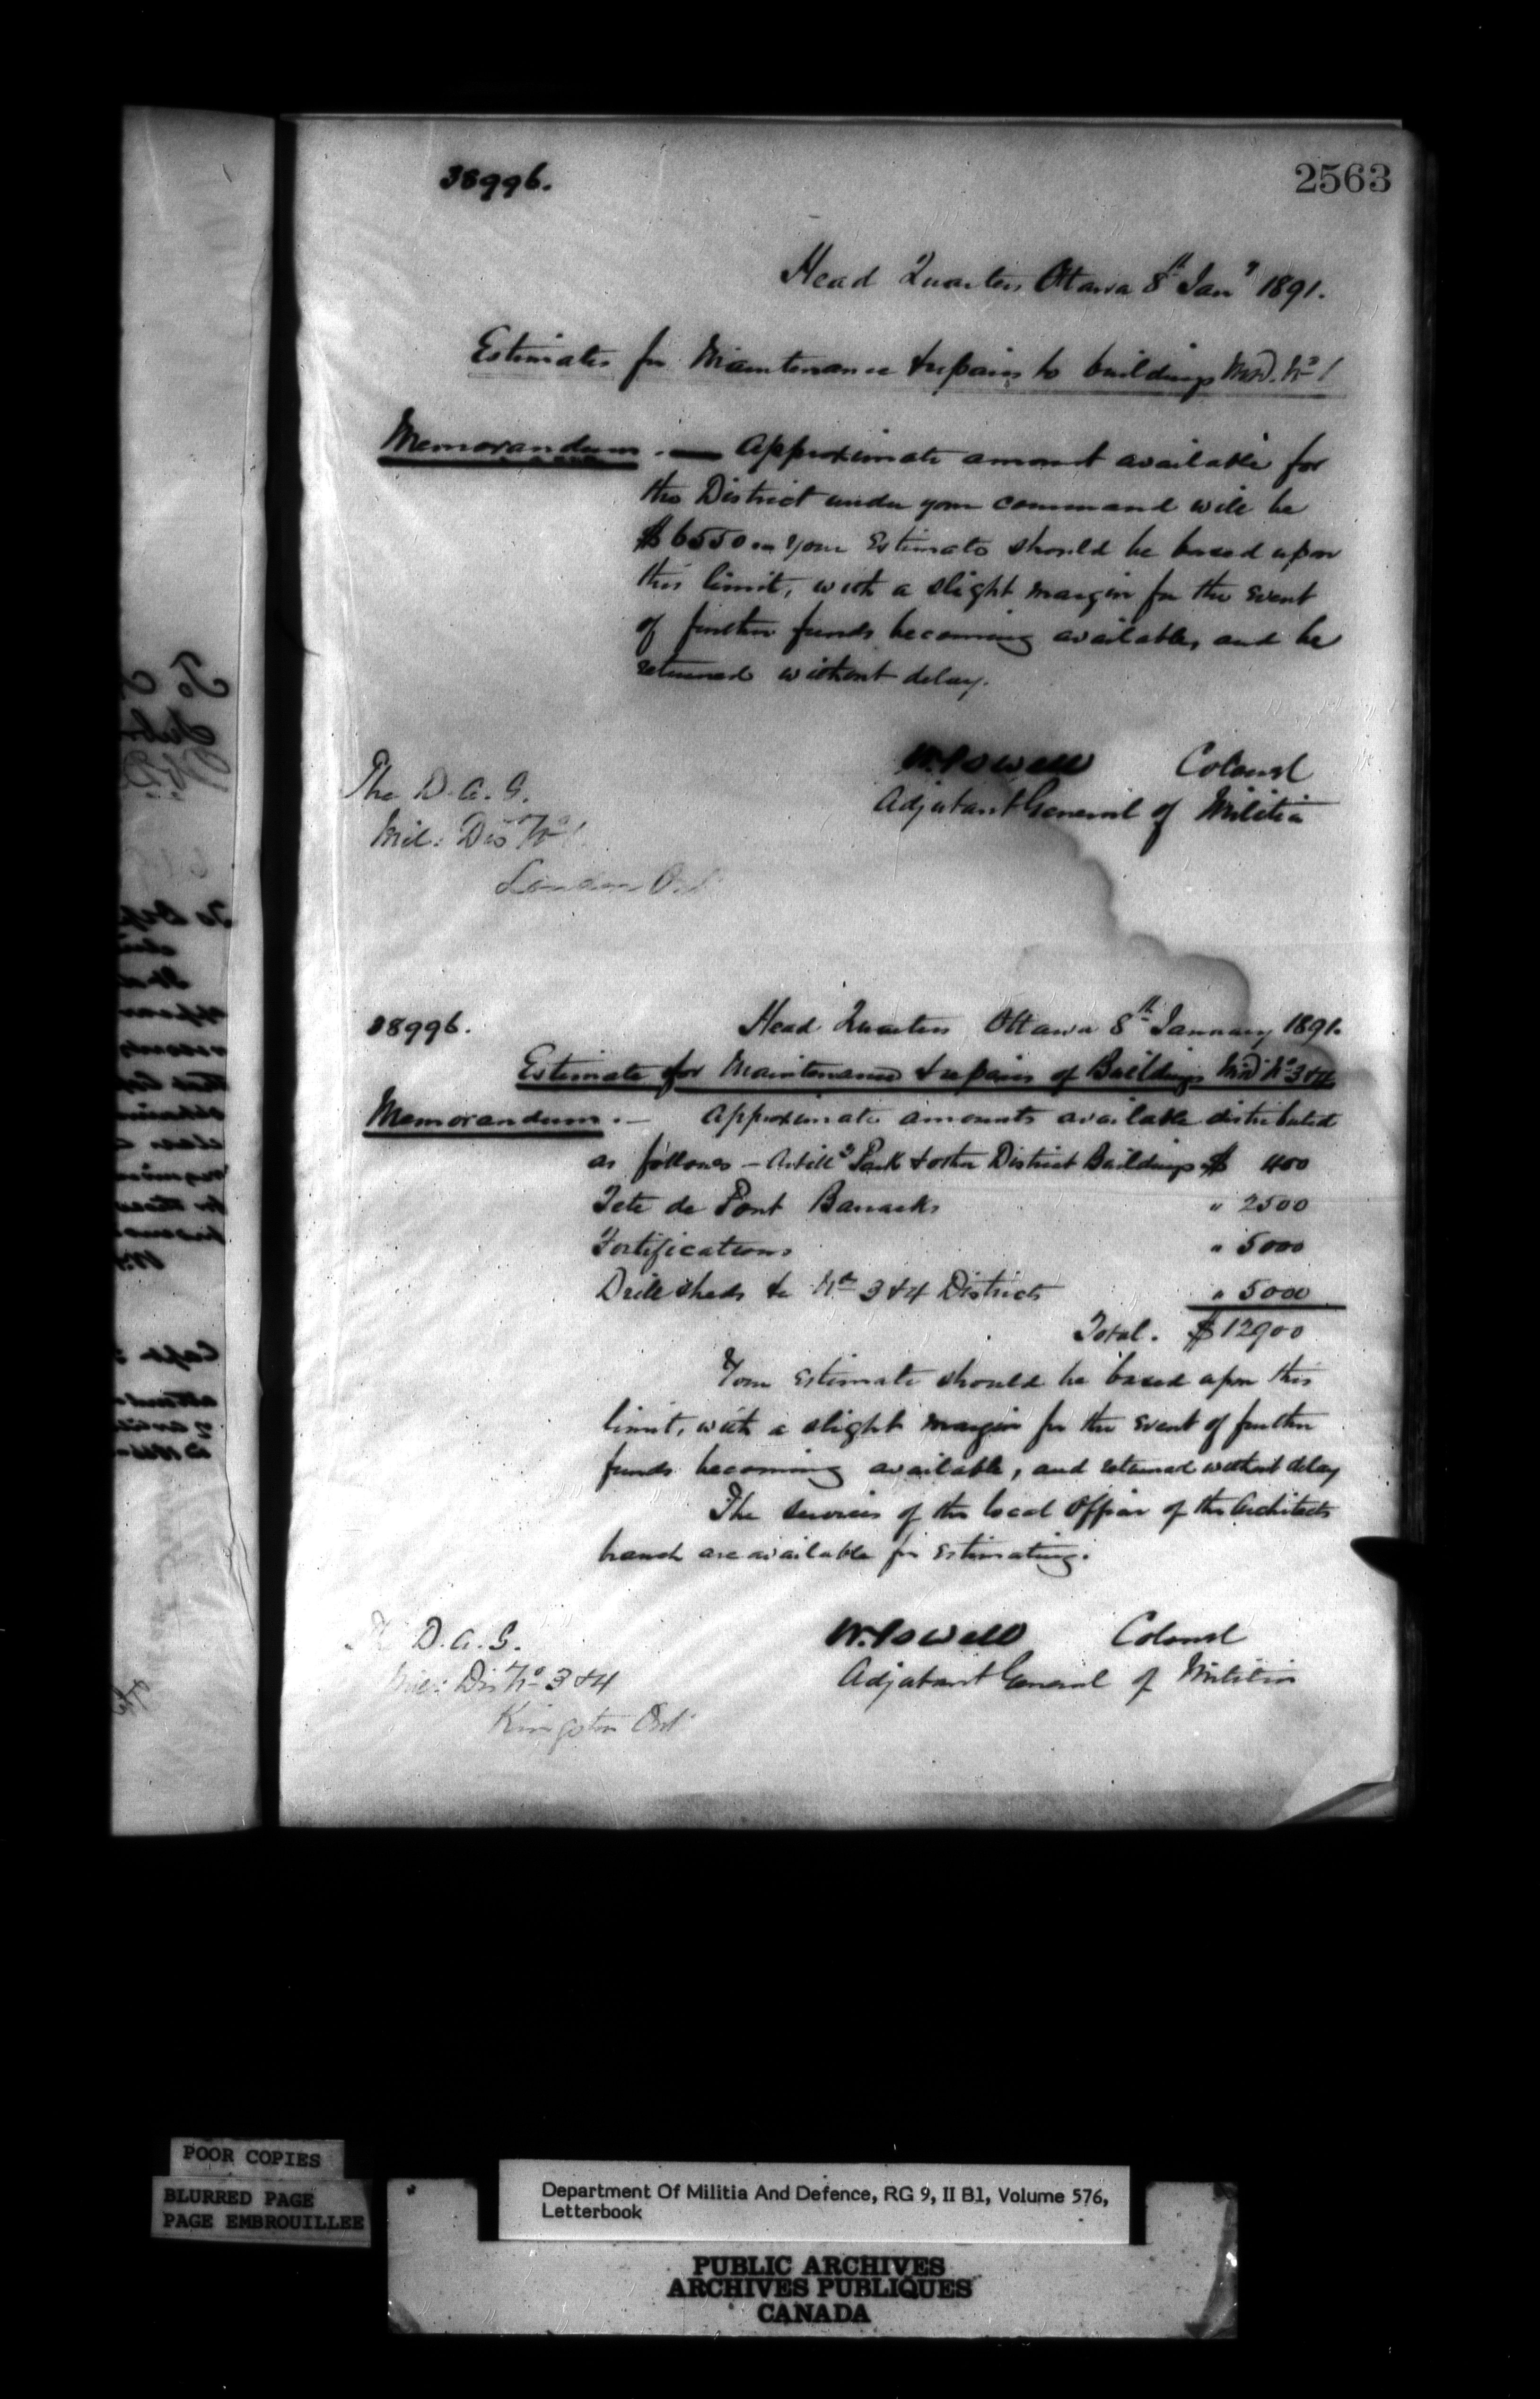 38996.
2563
Head Quarters Ottawa 8th Jany 1891.
Estimates for Maintenance & repairs to buildings M.D. No 1
Memorandum. — Approximate amount available for
the District under your command will be
$6550.— Your Estimate should be based upon
this limit, with a slight margin for the event
of further funds becoming available, and be
returned without delay.
W. Powell Colonel
Adjutant General of Militia
The D.A.G.
Mil: Dis No 1
London Ont
38996. Head Quarters Ottawa 8th January 1891.
Estimate for Maintenance & repairs of Buildings M.D. No 3 & 4
Memorandum.— Approximate amounts available distributed
as follows — Artilly Park & other District Buildings $ 400
Tete de Pont Barracks " 2500
Fortifications " 5000
Drill sheds &c Nos 3 & 4 Districts " 5000
Total. $12900
Your Estimate should be based upon this
limit, with a slight margin for the event of further
funds becoming available, and returned without delay
The services of the local Officer of the Architects
branch are available for Estimating.
W. Powell Colonel
Adjutant General of Militia
The D.A.G.
Mil: Dis No 3 & 4
Kingston Ont
POOR COPIES
BLURRED PAGE
PAGE EMBROUILLEE
Department Of Militia And Defence, RG 9, II B1, Volume 576,
Letterbook
PUBLIC ARCHIVES
ARCHIVES PUBLIQUES
CANADA